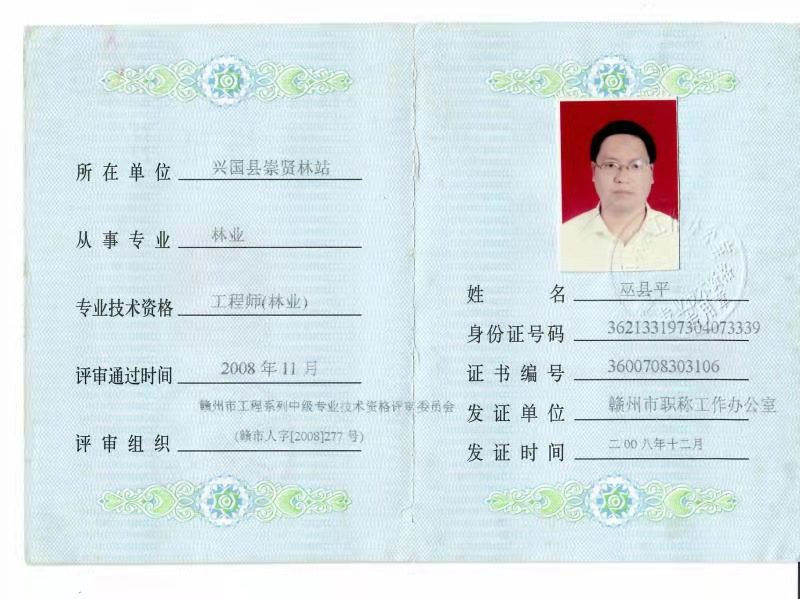 所在单位 兴国县崇贤林站
从事专业 林业
专业技术资格 工程师(林业)
评审通过时间 2008 年 11 月
赣州市工程系列中级专业技术资格评审委员会
评审组织 (赣市人字[2008]277 号)
姓名 巫县平
身份证号码 362133197304073339
证书编号 3600708303106
发证单位 赣州市职称工作办公室
发证时间 二00八年十二月